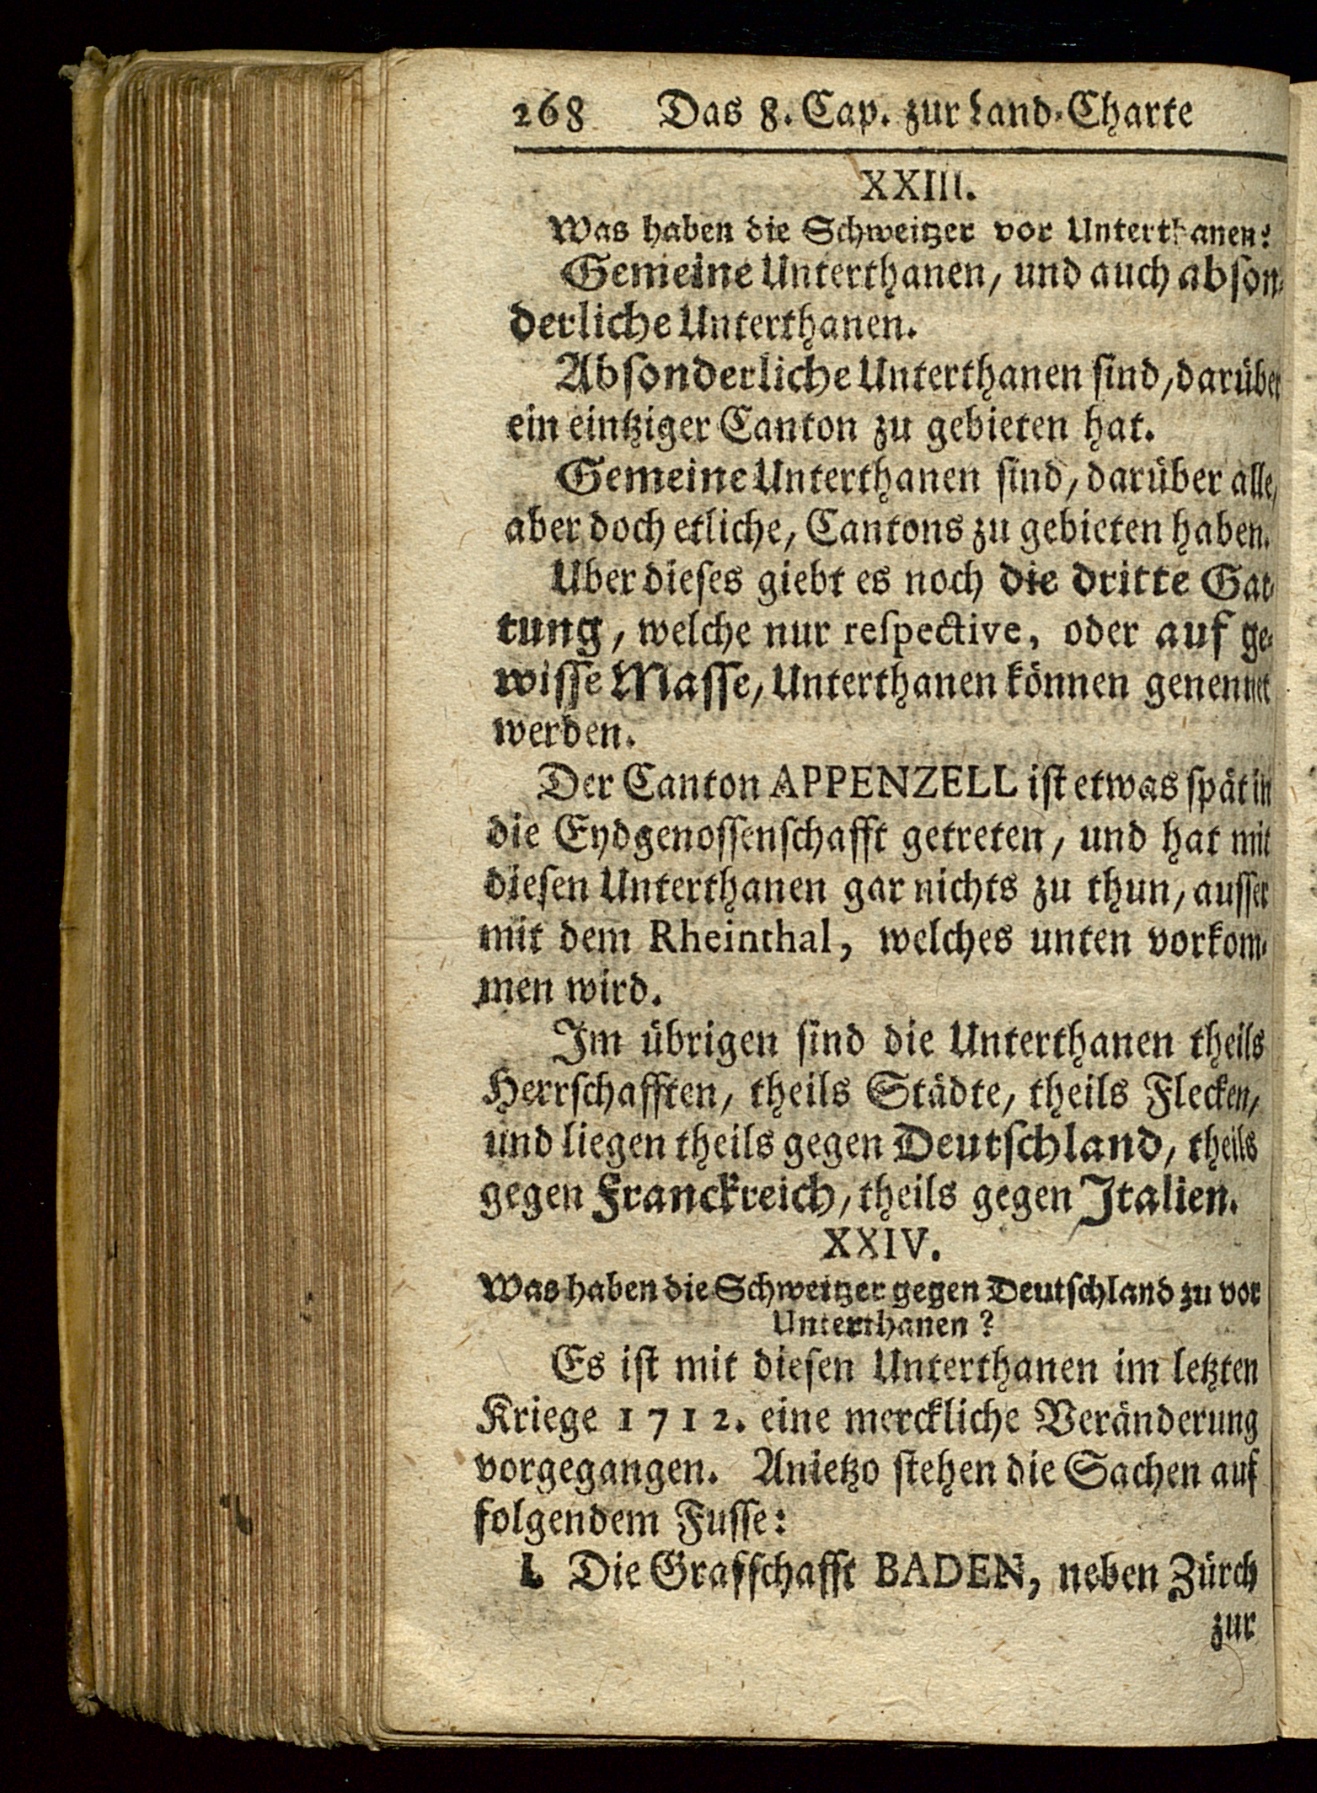 268 Das 8. Cap. zur Land-Charte
XXIII.
Was haben die Schweitzer vor Unterthanen?
Gemeine Unterthanen, und auch abson-
derliche Unterthanen.
Absonderliche Unterthanen sind, darüber
ein eintziger Canton zu gebieten hat.
Gemeine Unterthanen sind, darüber alle,
aber doch etliche, Cantons zu gebieten haben.
Uber dieses giebt es noch die dritte Gat-
tung, welche nur respective, oder auf ge-
wisse Masse, Unterthanen können genennet
werden.
Der Canton APPENZELL ist etwas spät in
die Eydgenossenschafft getreten, und hat mit
diesen Unterthanen gar nichts zu thun, ausser
mit dem Rheinthal, welches unten vorkom-
men wird.
Im übrigen sind die Unterthanen theils
Herrschafften, theils Städte, theils Flecken,
und liegen theils gegen Deutschland, theils
gegen Franckreich, theils gegen Italien.
XXIV.
Was haben die Schweitzer gegen Deutschland zu vor
Unterthanen?
Es ist mit diesen Unterthanen im letzten
Kriege 1712. eine merckliche Veränderung
vorgegangen. Anietzo stehen die Sachen auf
folgendem Fusse:
I. Die Graffschafft BADEN, neben Zürch
zur